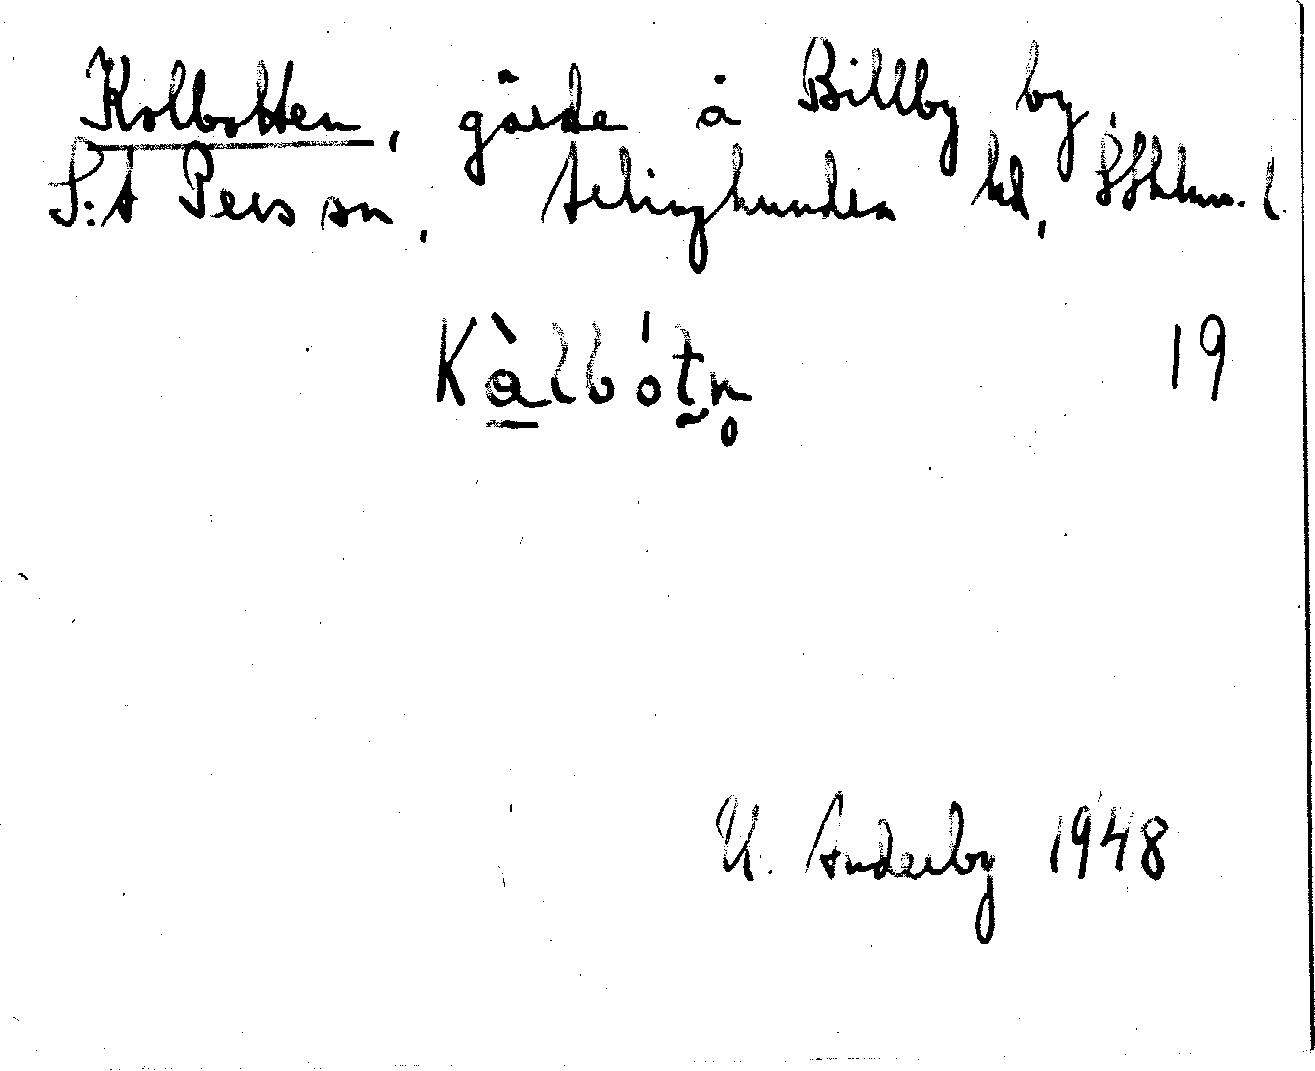 Kolbotten, gärde å Billby by,
S:t Pers sn, Selinghundra hd, Sthlms. l.
Kàlbótn̥ 19
U. Anderby 1948